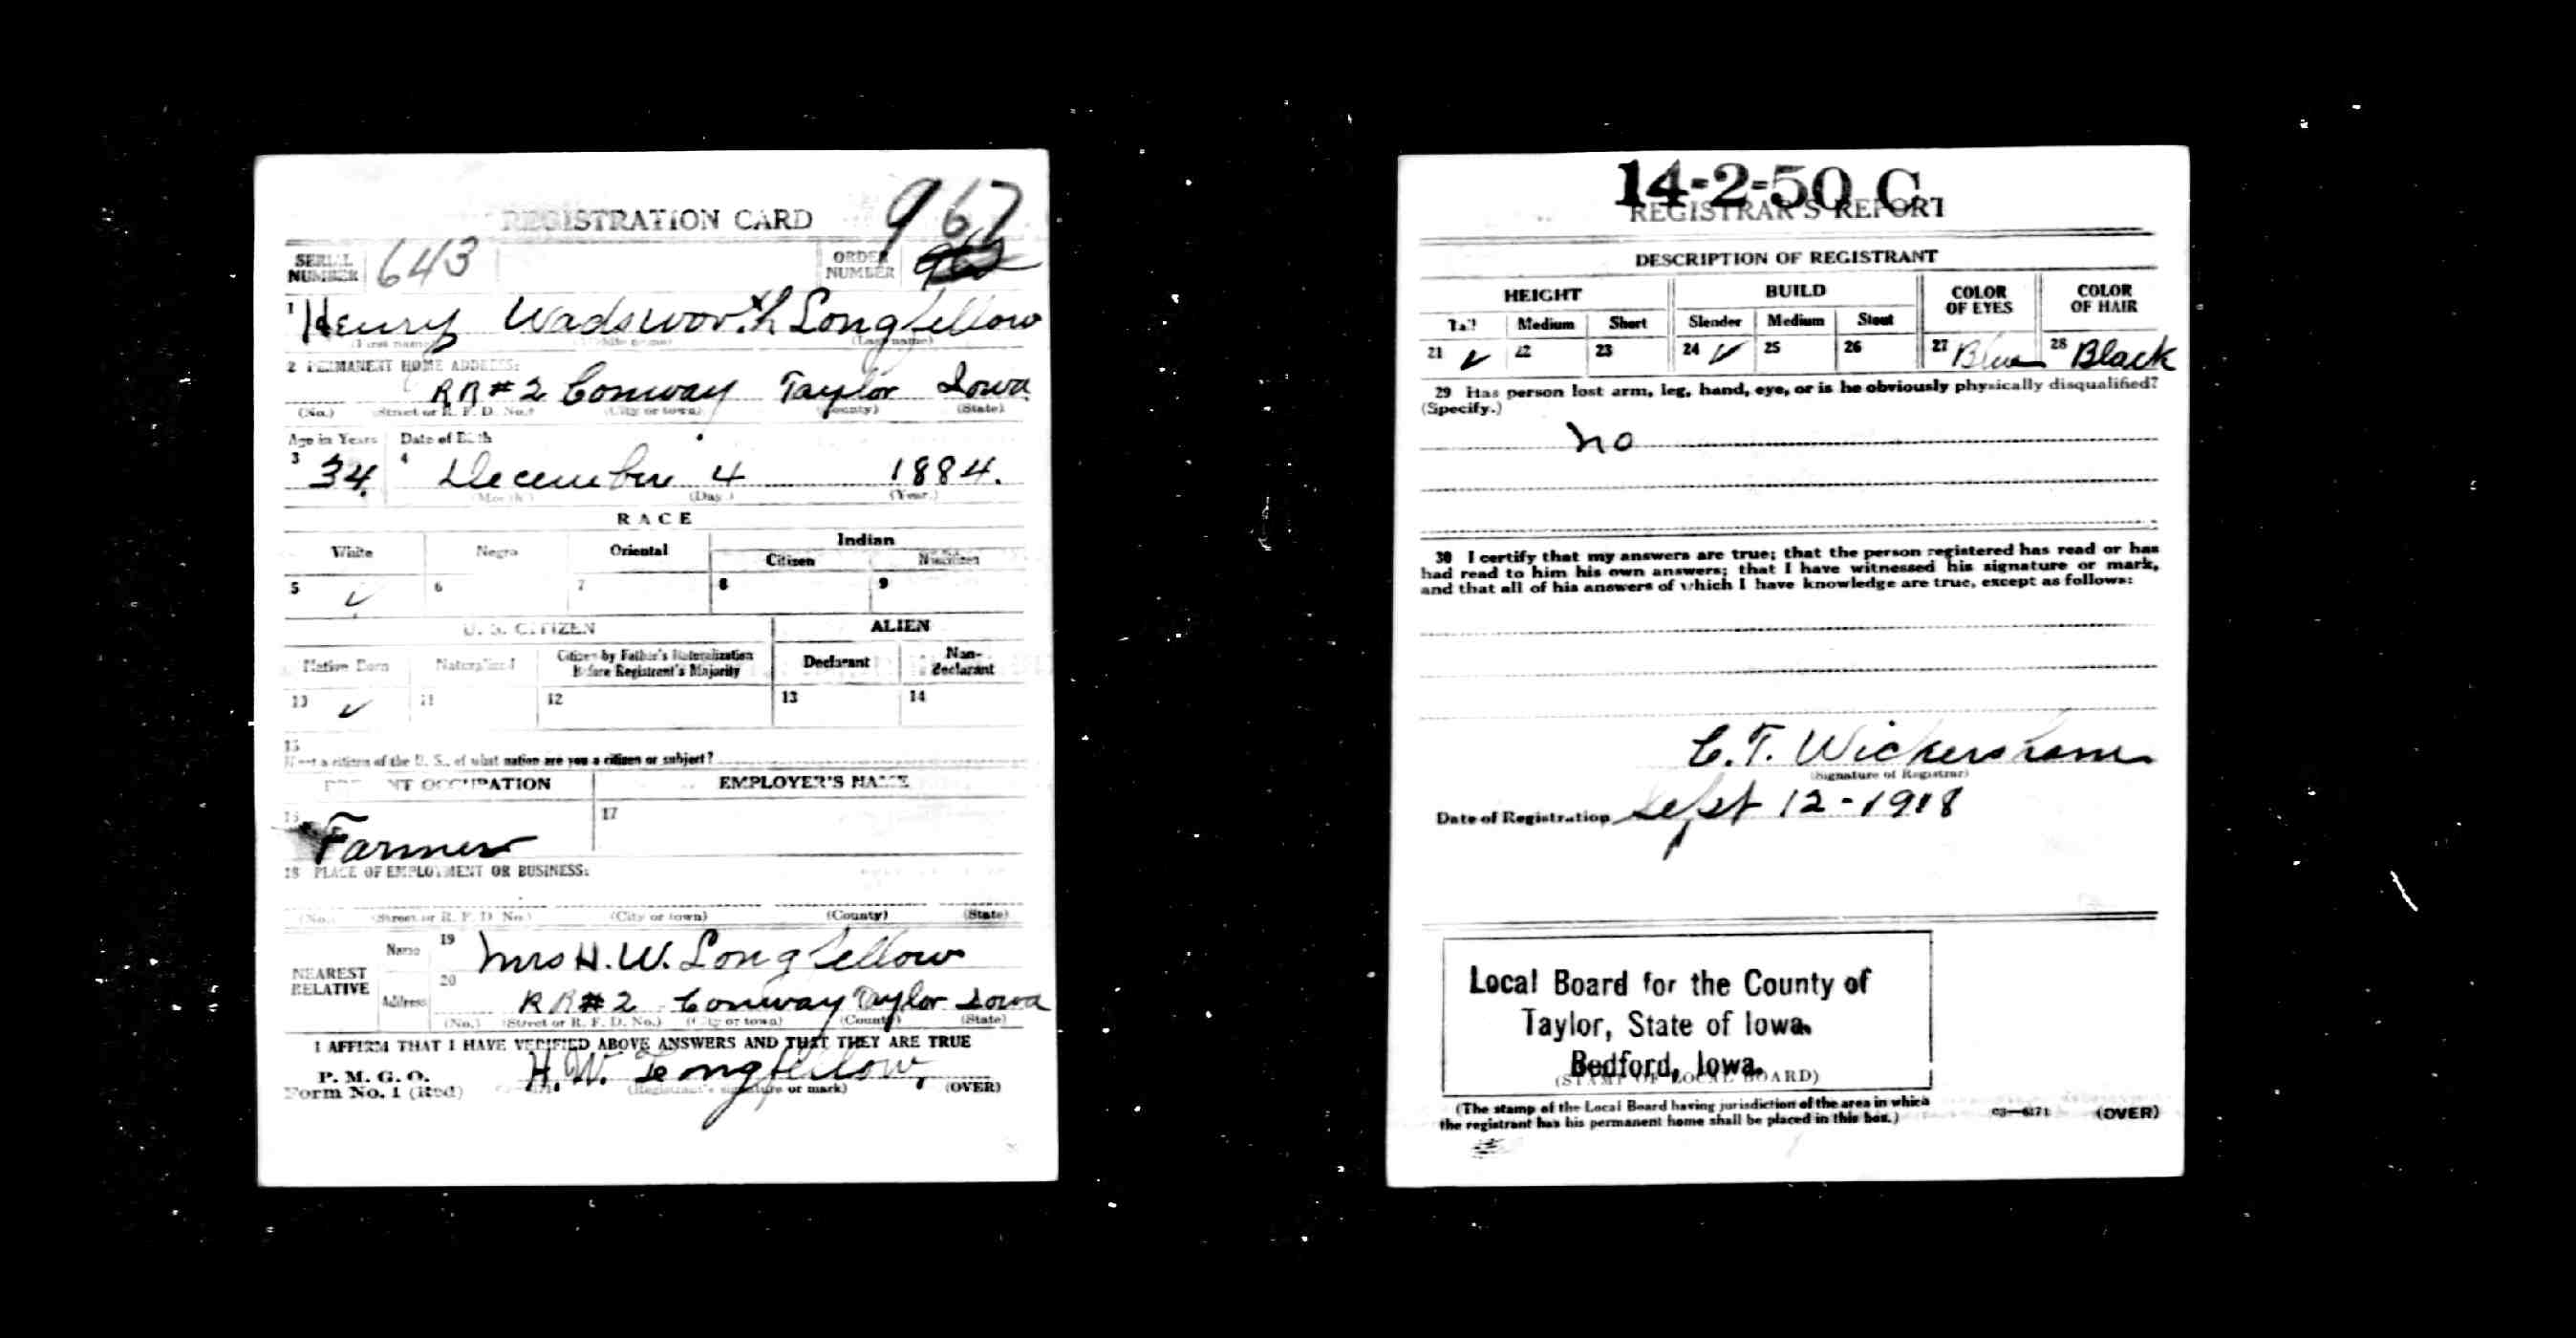 967
REGISTRATION CARD
SERIAL NUMBER 643 ORDER NUMBER
1 Henry Wadsworth Longfellow
(First name) (Middle name) (Last name)
2 PERMANENT HOME ADDRESS:
RR#2 Conway Taylor Iowa
(No.) (Street or R. F. D. No.) (City or town) (County) (State)
Age in Years Date of Birth
3 34. 4 December 4 1884.
(Month) (Day) (Year.)
RACE
White Negro Oriental Indian
Citizen Noncitizen
5 ✓ 6 7 8 9
U. S. CITIZEN ALIEN
Native Born Naturalized Citizen by Father's Naturalization Before Registrant's Majority Declarant Non-declarant
10 ✓ 11 12 13 14
15
If not a citizen of the U. S., of what nation are you a citizen or subject?
PRESENT OCCUPATION EMPLOYER'S NAME
16 Farmer 17
18 PLACE OF EMPLOYMENT OR BUSINESS:
(No.) (Street or R. F. D. No.) (City or town) (County) (State)
NEAREST RELATIVE Name 19 Mrs H. W. Longfellow
Address 20 RR#2 Conway Taylor Iowa
(No.) (Street or R. F. D. No.) (City or town) (County) (State)
I AFFIRM THAT I HAVE VERIFIED ABOVE ANSWERS AND THAT THEY ARE TRUE
P. M. G. O.
Form No. 1 (Red) H. W. Longfellow, (Registrant's signature or mark) (OVER)
14-2-50 C.
REGISTRAR'S REPORT
DESCRIPTION OF REGISTRANT
HEIGHT BUILD COLOR OF EYES COLOR OF HAIR
Tall Medium Short Slender Medium Stout
21 ✓ 22 23 24 ✓ 25 26 27 Blue 28 Black
29 Has person lost arm, leg, hand, eye, or is he obviously physically disqualified?
(Specify.)
no
30 I certify that my answers are true; that the person registered has read or has
had read to him his own answers; that I have witnessed his signature or mark,
and that all of his answers of which I have knowledge are true, except as follows:
C. T. Wickersham
(Signature of Registrar)
Date of Registration Sept 12-1918
Local Board for the County of
Taylor, State of Iowa.
Bedford, Iowa.
(STAMP OF LOCAL BOARD)
(The stamp of the Local Board having jurisdiction of the area in which
the registrant has his permanent home shall be placed in this box.)
03—6171 (OVER)